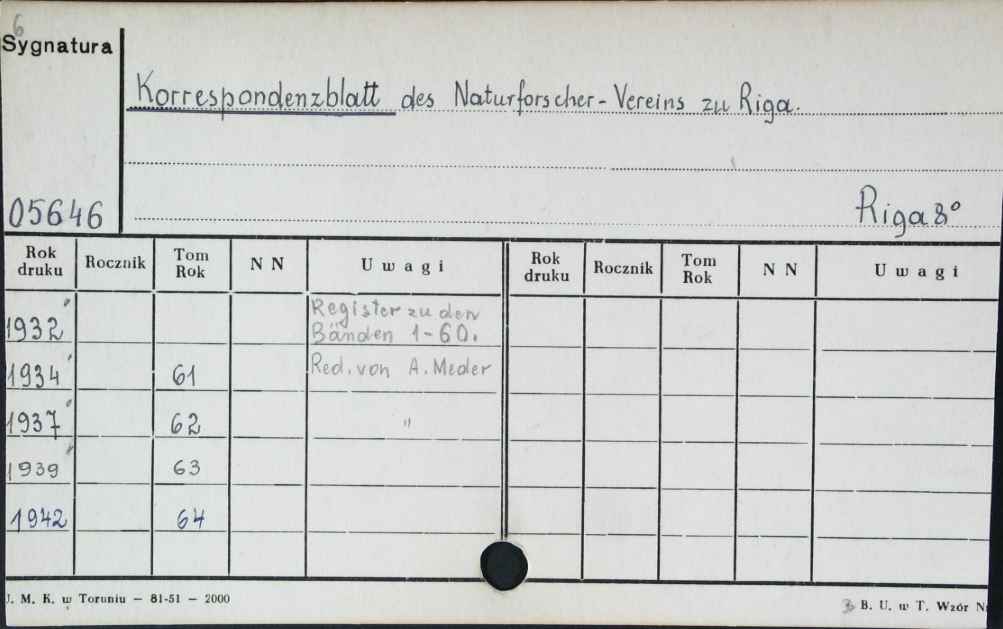 6
Sygnatura
Korrespondenzblatt des Naturforscher-Vereins zu Riga.
05646
Riga 8°
Rok druku Rocznik Tom Rok N N Uwagi Rok druku Rocznik Tom Rok N N Uwagi
1932 Register zu den
Bänden 1-60.
1934 61 Red. von A. Meder
1937 62 "
1939 63
1942 64
J. M. K. w Toruniu — 81-51 — 2000
B. U. w T. Wzór